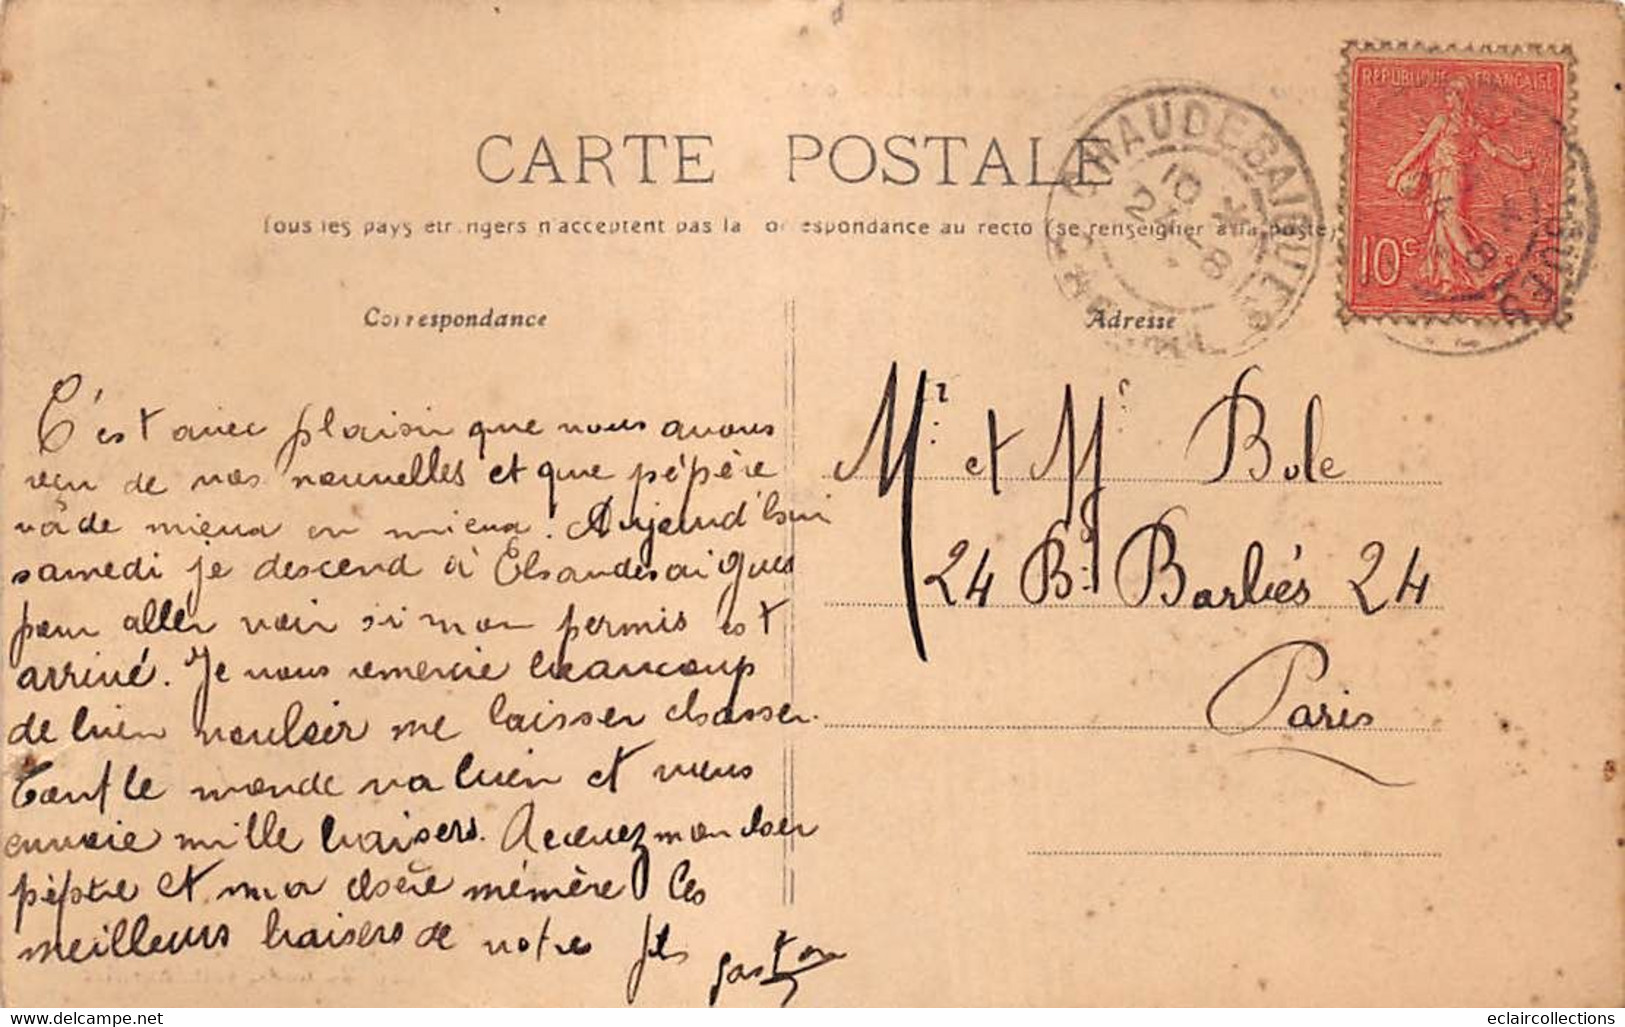 CARTE POSTALE
Tous les pays étrangers n'acceptent pas la correspondance au recto (se renseigner à la poste)
Correspondance
Adresse
CHAUDESAIGUES
10 *
2 - 8
REPUBLIQUE FRANÇAISE
10c
C'est avec plaisir que nous avons
reçu de vos nouvelles et que pépère
va de mieux en mieux. Aujourd'hui
samedi je descend à Chaudesaigues
pour aller voir si mon permis est
arrivé. Je vous remercie beaucoup
de bien vouloir me laisser chasser.
Tout le monde va bien et vous
envoie mille baisers. Recevez mon cher
pépère et ma chère mémère les
meilleurs baisers de votre fils
Gaston
Mr et Mr Bole
24 Bd Barbés 24
Paris
eclaircollections
www.delcampe.net